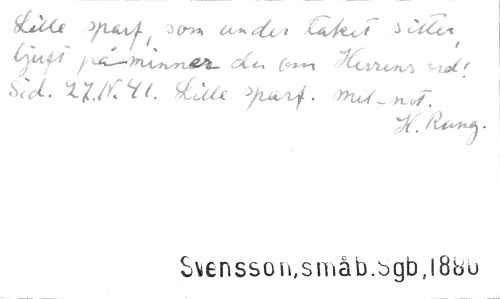 Lille sparf, som under taket sitter,
ljuft på minner du om Herrens ord!
Sid. 27. N. 41. Lille sparf. mel-not.
H. Rung.
Svensson, småb. Sgb, 1880